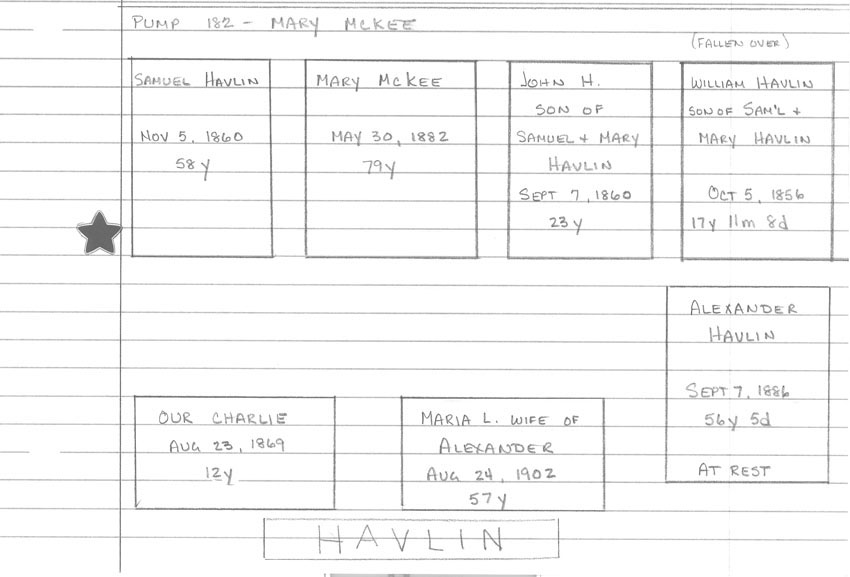 PUMP 182 - MARY MCKEE
(FALLEN OVER)
SAMUEL HAVLIN
NOV 5, 1860
58 y
MARY MCKEE
MAY 30, 1882
79y
JOHN H.
SON OF
SAMUEL + MARY
HAVLIN
SEPT 7, 1860
23 y
WILLIAM HAVLIN
SON OF SAM'L +
MARY HAVLIN
OCT 5, 1856
17y 11m 8d
ALEXANDER
HAVLIN
SEPT 7, 1886
56y 5d
AT REST
OUR CHARLIE
AUG 23, 1869
12y
MARIA L. WIFE OF
ALEXANDER
AUG 24, 1902
57 y
HAVLIN